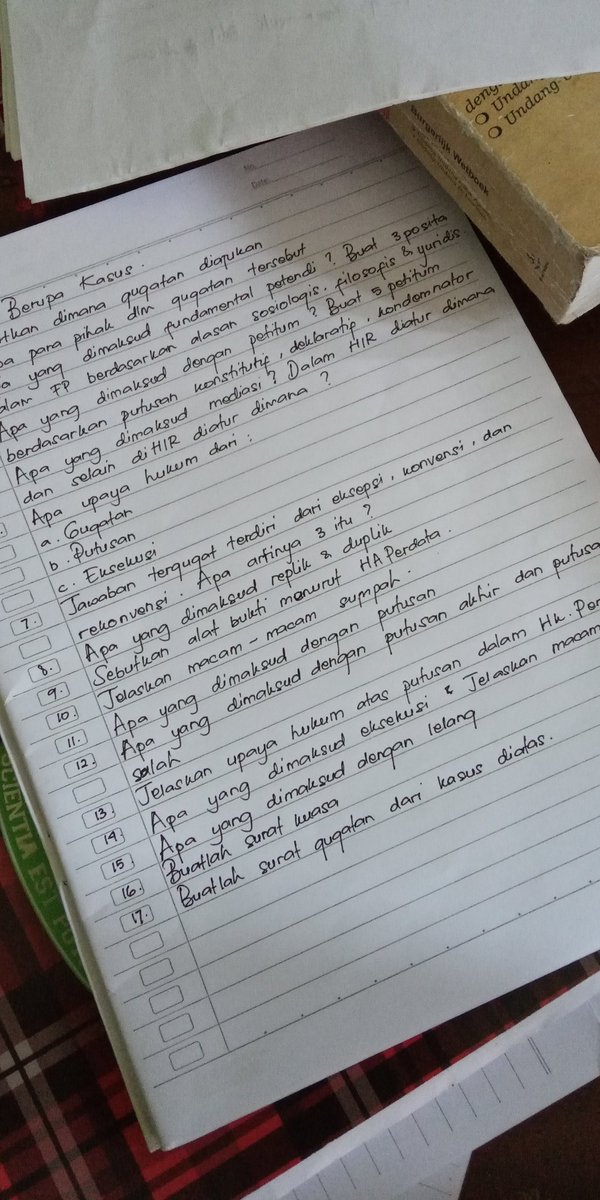 deng
O Undang
O Undang-U
Burgerlijk Wetboek
No.
Date.
Berupa Kasus.
tkan dimana gugatan diajukan
pa para pihak dlm gugatan tersebut
a yang dimaksud fundamental petendi? Buat 3 posita
alam FP berdasarkan alasan sosiologis, filosofis & yuridis.
Apa yang dimaksud dengan petitum? Buat 5 petitum
berdasarkan putusan konstitutif, deklaratif, kondemnator
Apa yang dimaksud mediasi? Dalam HIR diatur dimana
dan selain di HIR diatur dimana?
Apa upaya hukum dari:
a. Gugatan
b. Putusan
c. Eksekusi
7. Jawaban tergugat terdiri dari eksepsi, konvensi, dan
rekonvensi. Apa artinya 3 itu?
8. Apa yang dimaksud replik & duplik
9. Sebutkan alat bukti menurut HAPerdata.
10. Jelaskan macam-macam sumpah.
11. Apa yang dimaksud dengan putusan
12. Apa yang dimaksud dengan putusan akhir dan putusa
salah
13. Jelaskan upaya hukum atas putusan dalam Hk. Per
14. Apa yang dimaksud eksekusi & Jelaskan macam
15. Apa yang dimaksud dengan lelang
16. Buatlah surat kuasa
17. Buatlah surat gugatan dari kasus diatas.
SCIENTIA EST PO